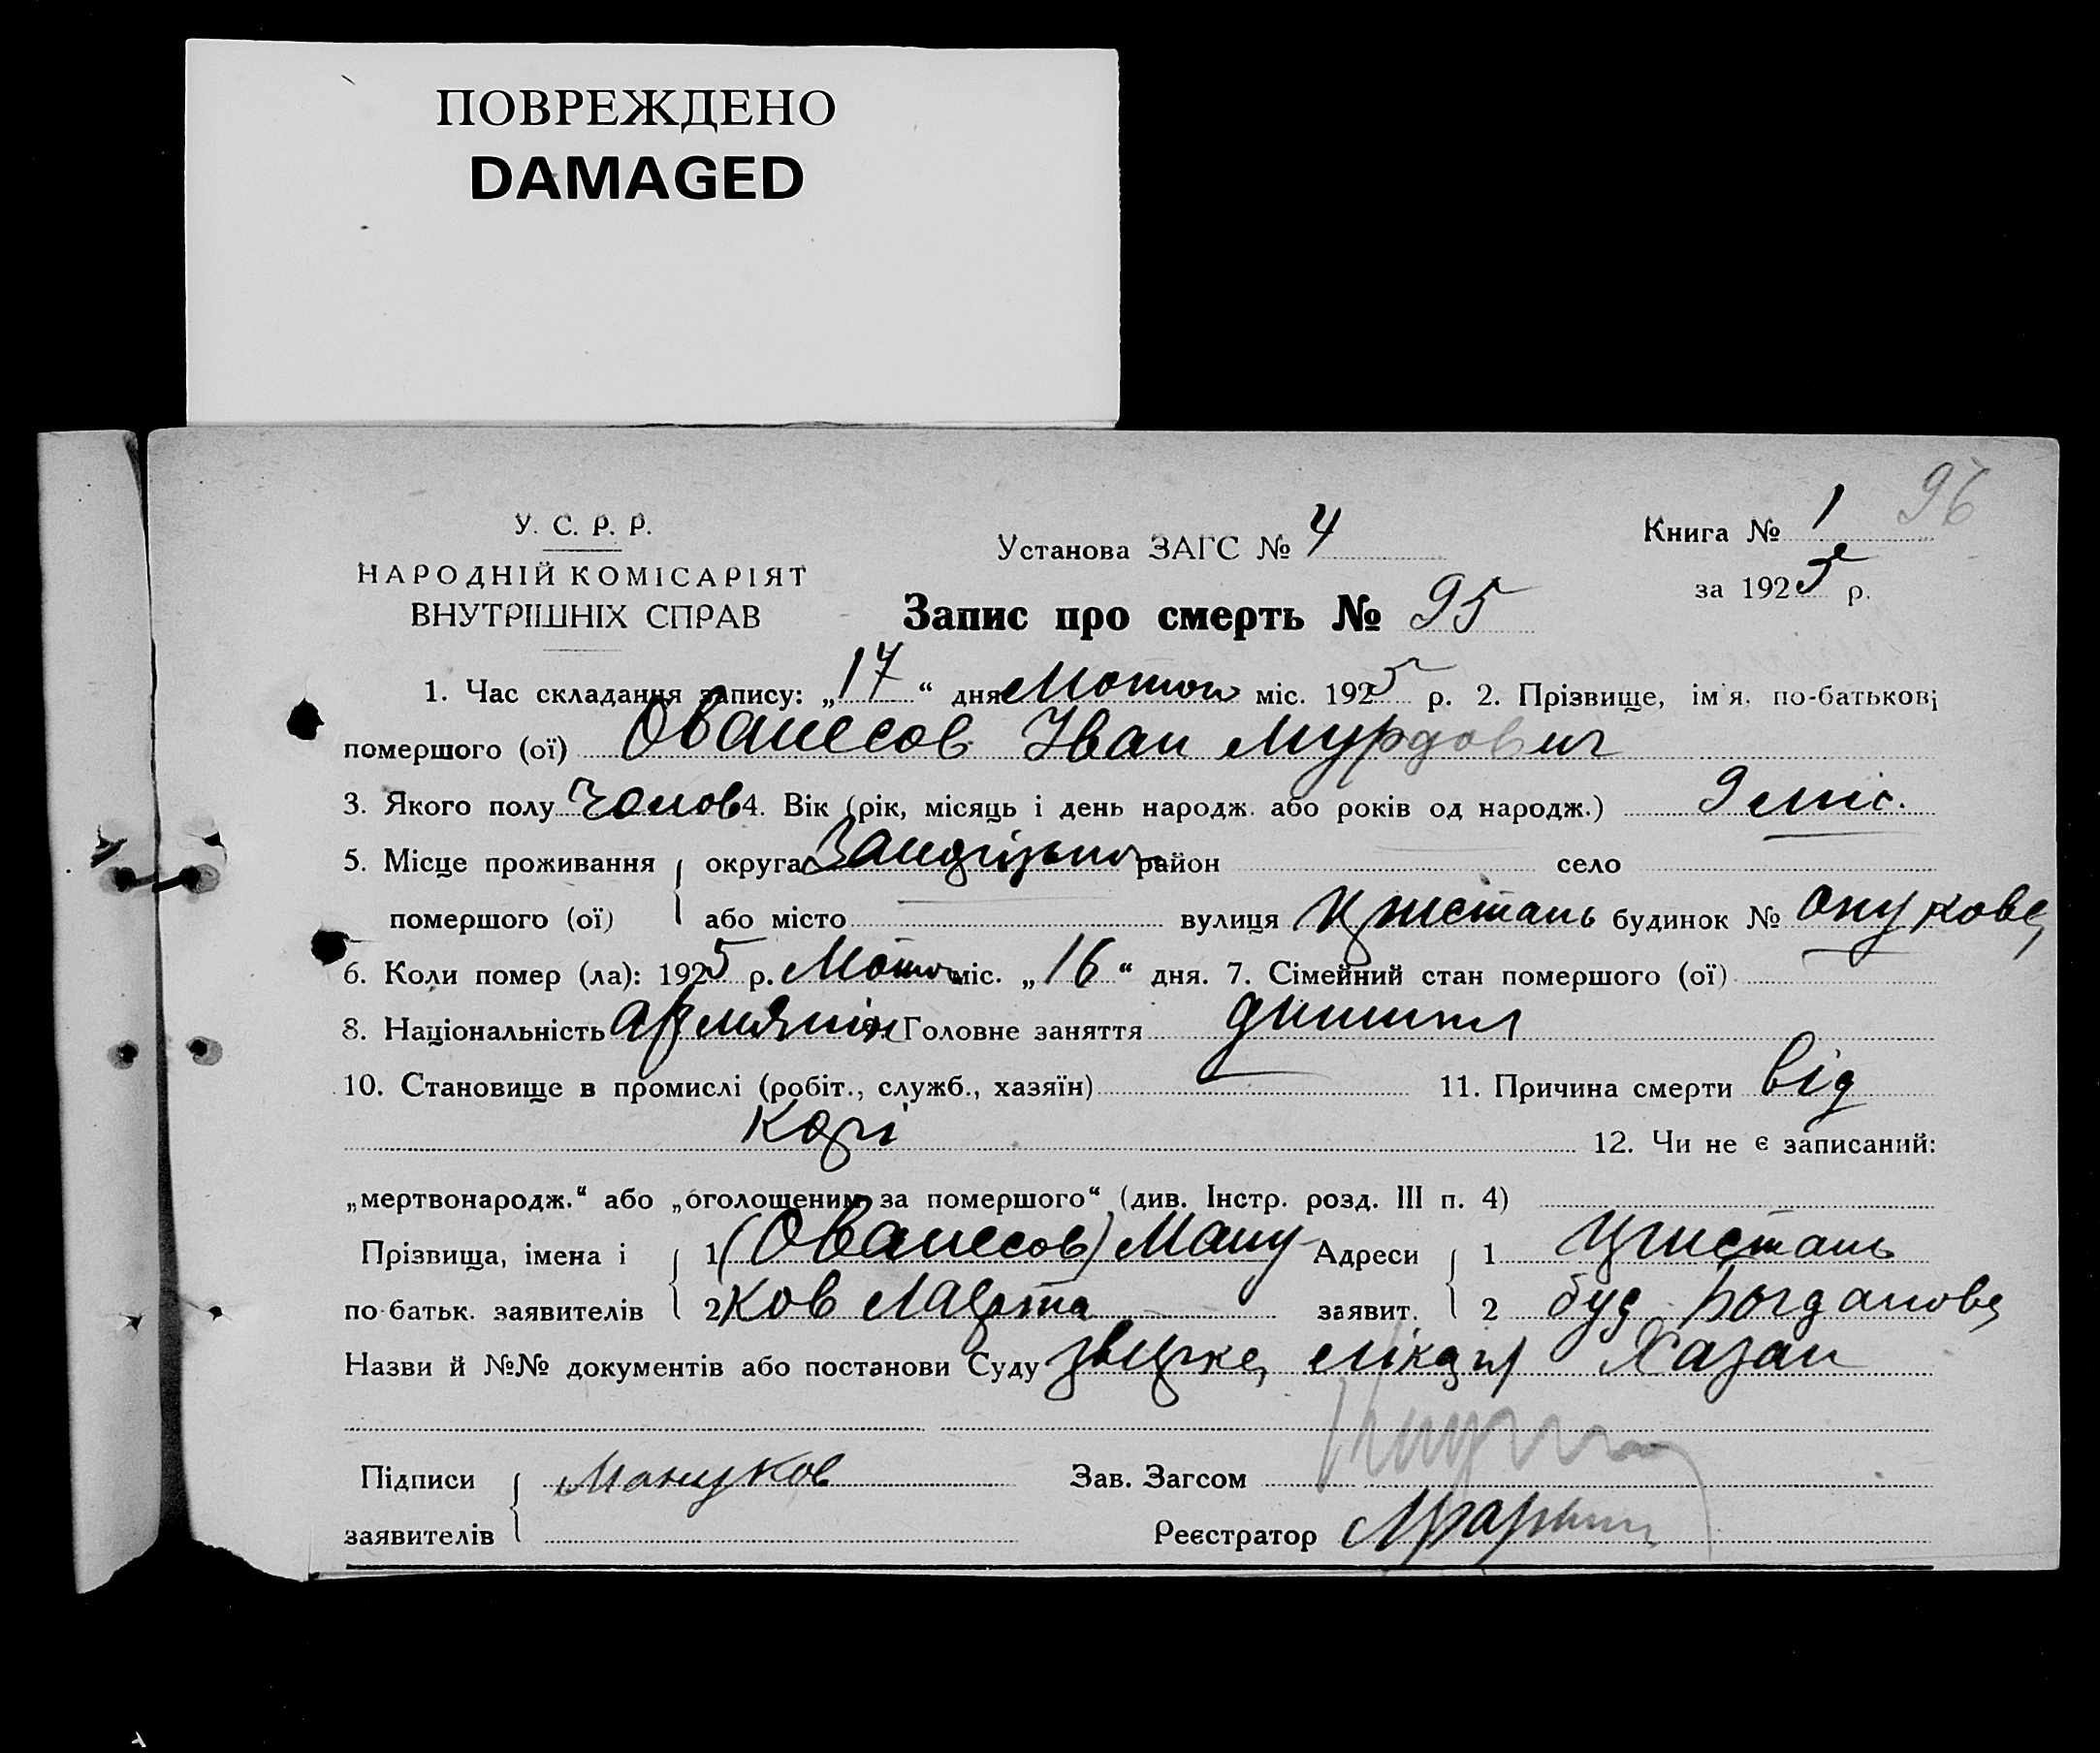 ПОВРЕЖДЕНО
DAMAGED
96
У. С. Р. Р.
НАРОДНІЙ КОМІСАРІЯТ
ВНУТРІШНІХ СПРАВ
Установа ЗАГС № 4
Книга № 1
за 1925 р.
Запис про смерть № 95
1. Час складання запису: „17“ дня міс. 1925 р. 2. Прізвище, ім'я, по-батькові
помершого (ої) Ованесов Іван Мурдович
3. Якого полу чолов 4. Вік (рік, місяць і день народж. або років од народж.) 9 міс.
5. Місце проживання округа район село
помершого (ої) або місто вулиця будинок №
6. Коли помер (ла): 1925 р. міс. „16“ дня. 7. Сімейний стан помершого (ої)
8. Національність Армянін Головне заняття
10. Становище в промислі (робіт., служб., хазяїн) 11. Причина смерти від
Корі 12. Чи не є записаний:
„мертвонародж.“ або „оголошеним за помершого“ (див. Інстр. розд. III п. 4)
Прізвища, імена і 1 (Ованесов) Ману Адреси 1
по-батьк. заявителів 2 ков заявит. 2 буд. Богданова
Назви й №№ документів або постанови Суду Хазан
Підписи Мануков Зав. Загсом
заявителів Реєстратор